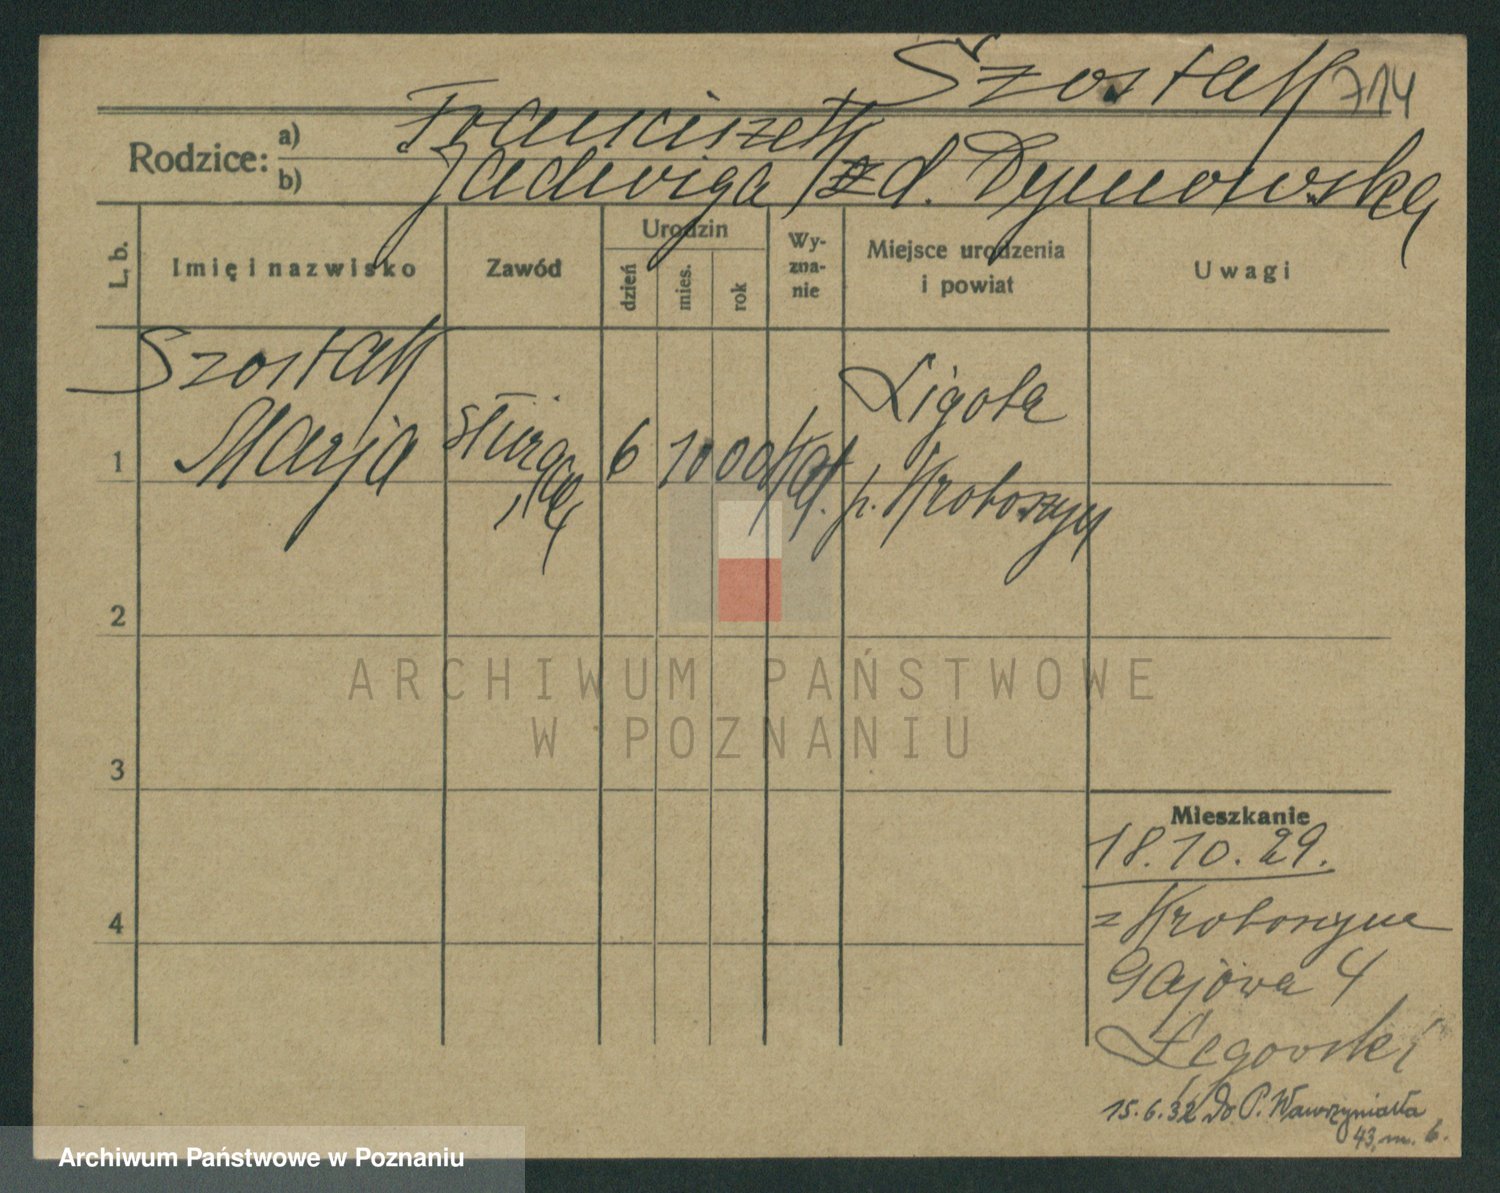 Szostak 714
Rodzice: a) Franciszek
b) Jadwiga zd. Dymowska
L. b.
Imię i nazwisko
Zawód
Urodzin
dzień
mies.
rok
Wy-
zna-
nie
Miejsce urodzenia
i powiat
Uwagi
Szostak
Marja
1
6 10 00 kat.
Ligota
p. Krotoszyn
2
3
4
Mieszkanie
18.10.29.
z Krotoszyna
Gajowa 4
Łęgowski
15.6.32 Do P. Wawrzyniaka
43, m. 6.
ARCHIWUM PAŃSTWOWE
W POZNANIU
Archiwum Państwowe w Poznaniu